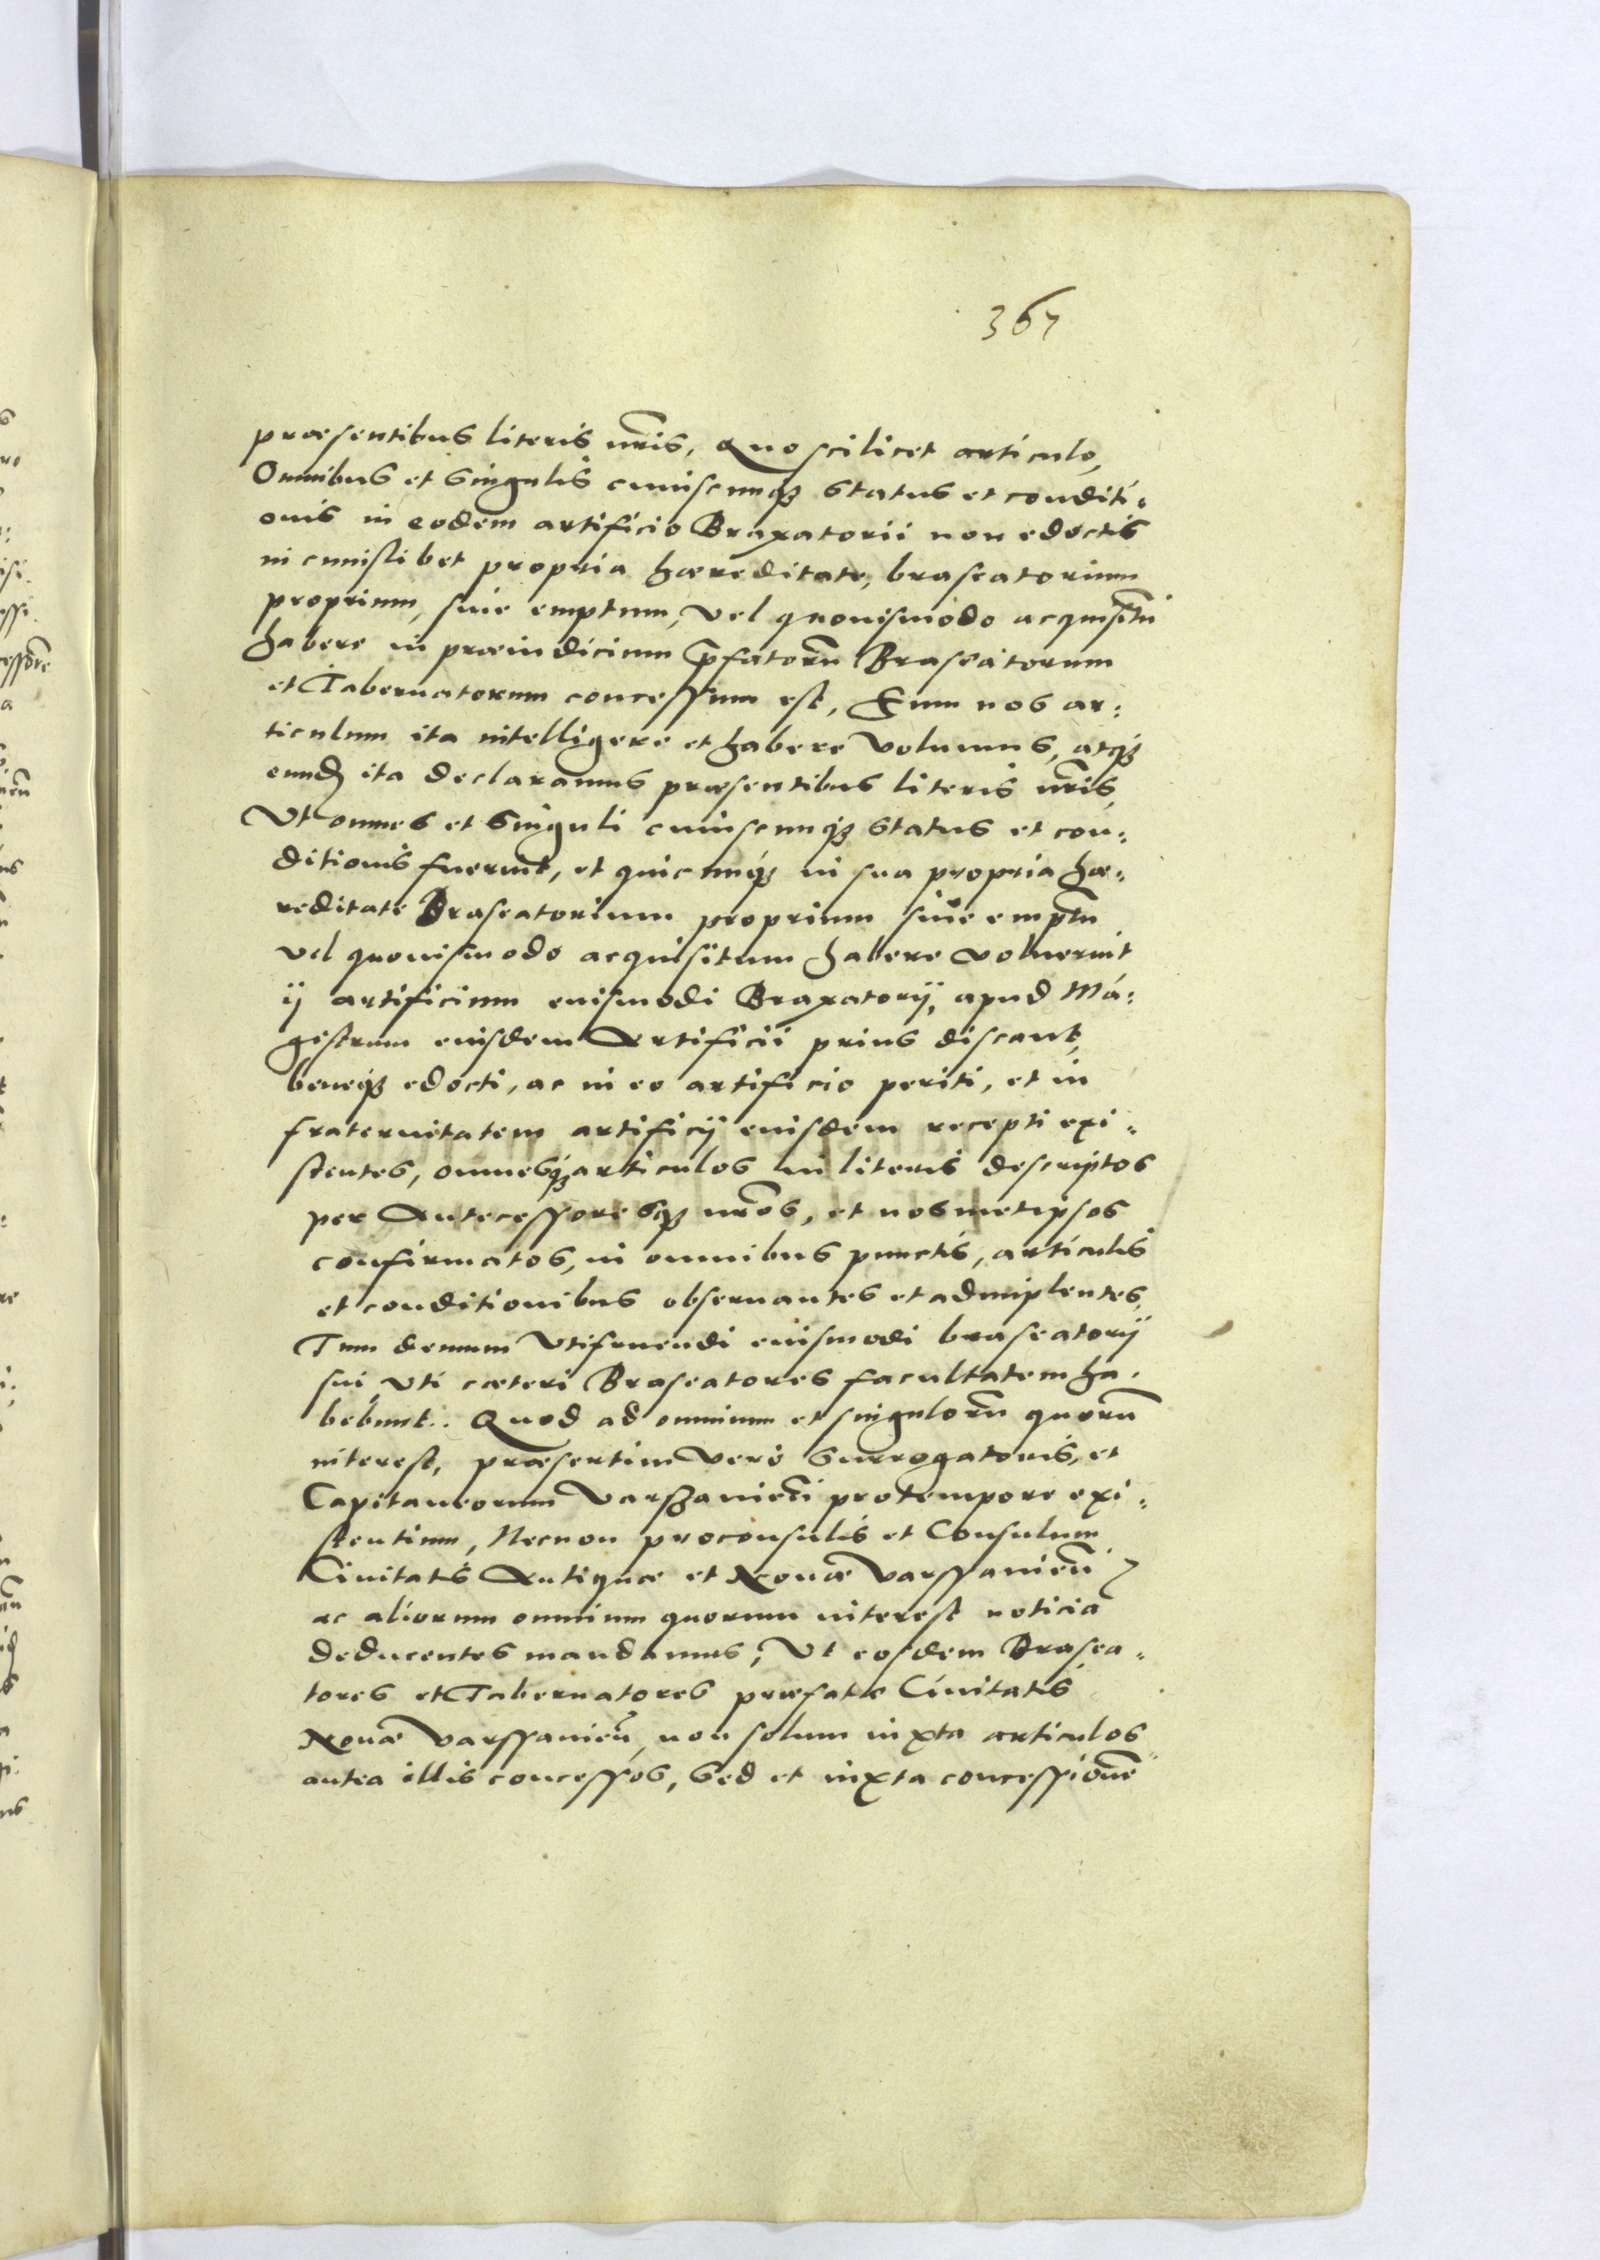 367
præsentibus literis nr̃is, Quo scilicet articulo,
Omnibus et singulis cuiuscunqꝫ status et conditi-
onis in eodem artificio Braxatorii non edoctis
in cuiuslibet propria hæreditate, braseatorium
proprium, siue emptum, vel quouismodo acquisitũ
habere in præiudicium p̃fatorũ Braseatorum
et Tabernatorum concessum est, Eum nos ar-
ticulum ita intelligere et habere volumus, atqꝫ
eundẽ ita declaramus præsentibus literis nr̃is,
Vt omnes et singuli cuiuscunqꝫ status et con-
ditionis fuerint, et quicunqꝫ in sua propria hæ-
reditate Braseatorium proprium siue emptũ
vel quouismodo acquisitum habere voluerint
ij artificium euismodi Braxatorij, apud Ma-
gistrum euisdem Artificii prius discant,
beneqꝫ edocti, ac in eo artificio periti, et in
fraternitatem artificij euisdem recepti exi-
stentes, omnesqꝫ articulos in literis descriptos
per Antecessoresqꝫ nr̃os, et nosmetipsos
confirmatos, in omnibus punctis, articulis
et conditionibus obseruantes et adimplentes,
Tum demum vtifruendi euismodi braseatorij
sui, vti cæteri Braseatores facultatem ha-
bebunt. Quod ad omnium et singulorũ quorũ
interest, præsertim vero Surrogatoris, et
Capitaneorum Varschauieñ pro tempore exi-
stentium, Necnon proconsulis et Consulum
Ciuitatis Antiquæ et Nouæ Varssauieñ
ac aliorum omnium quorum interest noticiã
deducentes mandamus, Vt eosdem Brasea-
tores et Tabernatores præfatæ Ciuitatis
Nouæ Varssauieñ, non solum iuxta articulos
antea illis concessos, Sed et iuxta concessionẽ